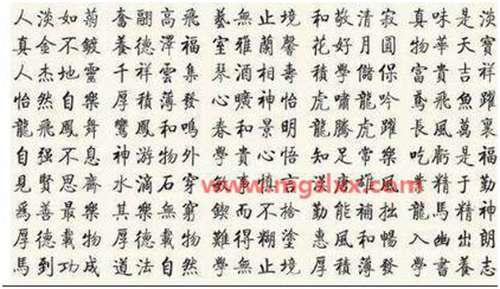 人淡如菊 奮翮高飛 藝無止境 和敬清寂 真味是淡
真金不鍍 養德澤福 室雅蘭馨 花好月圓 物華天寶
人杰地靈 千祥雲集 琴酒相壽 積學儲保 富貴吉祥
怡然自樂 厚積薄發 心曠神怡 虎嘯龍吟 鳶飛魚躍
龍飛鳳舞 鸞鳳和鳴 春和景明 龍騰虎躍 長風萬裏
自强不息 神游物外 學貴心悟 知足常樂 吃虧是福
見賢思齋 水滴石穿 敏事慎言 業精于勤
爲善最樂 其樂無窮 鍥而不捨 勤能補拙 龍馬精神
厚德載物 厚德載物 難得糊塗 惠風和暢 入幽出朗
馬到功成 道法自然 學無止境 厚積薄發 學書養志